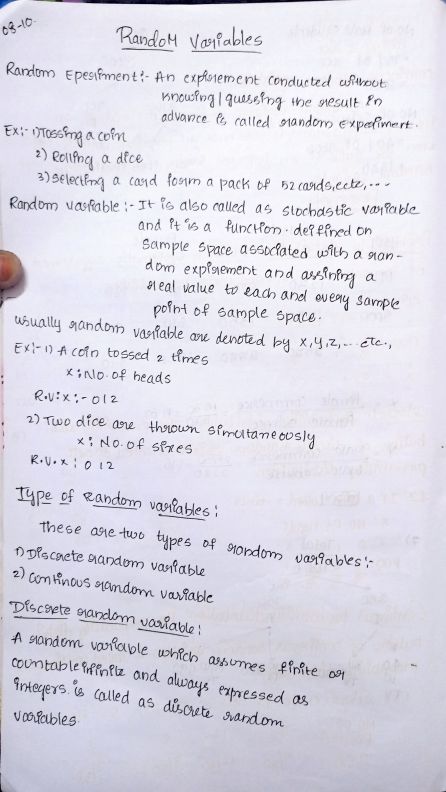 08-10-
Random Variables
Random Epesriment:- An expirement conducted without
knowing/guessing the result in
advance is called random Expeiriment.
Ex:- 1) Tossing a coin
2) Rolling a dice
3) selecting a card form a pack of 52 cards, ecte,...
Random variable :- It is also called as stochastic variable
and it is a function. deiffined on
Sample space associated with a ran-
dom expirement and assining a
real value to each and every sample
point of sample space.
usually random variable are denoted by x,y,z,... etc.,
Ex:- 1) A coin tossed 2 times
x: No. of heads
R.V: x:- 0 1 2
2) Two dice are thrown simultaneously
x: No. of sixes
R.V. x: 0 1 2
Type of Random variables:
These are two types of random variables:-
1) Discrete random variable
2) Continous random variable
Discrete random variable:
A random variable which assumes finite or
countable infinite and always expressed as
integers. is called as discrete random
variables.